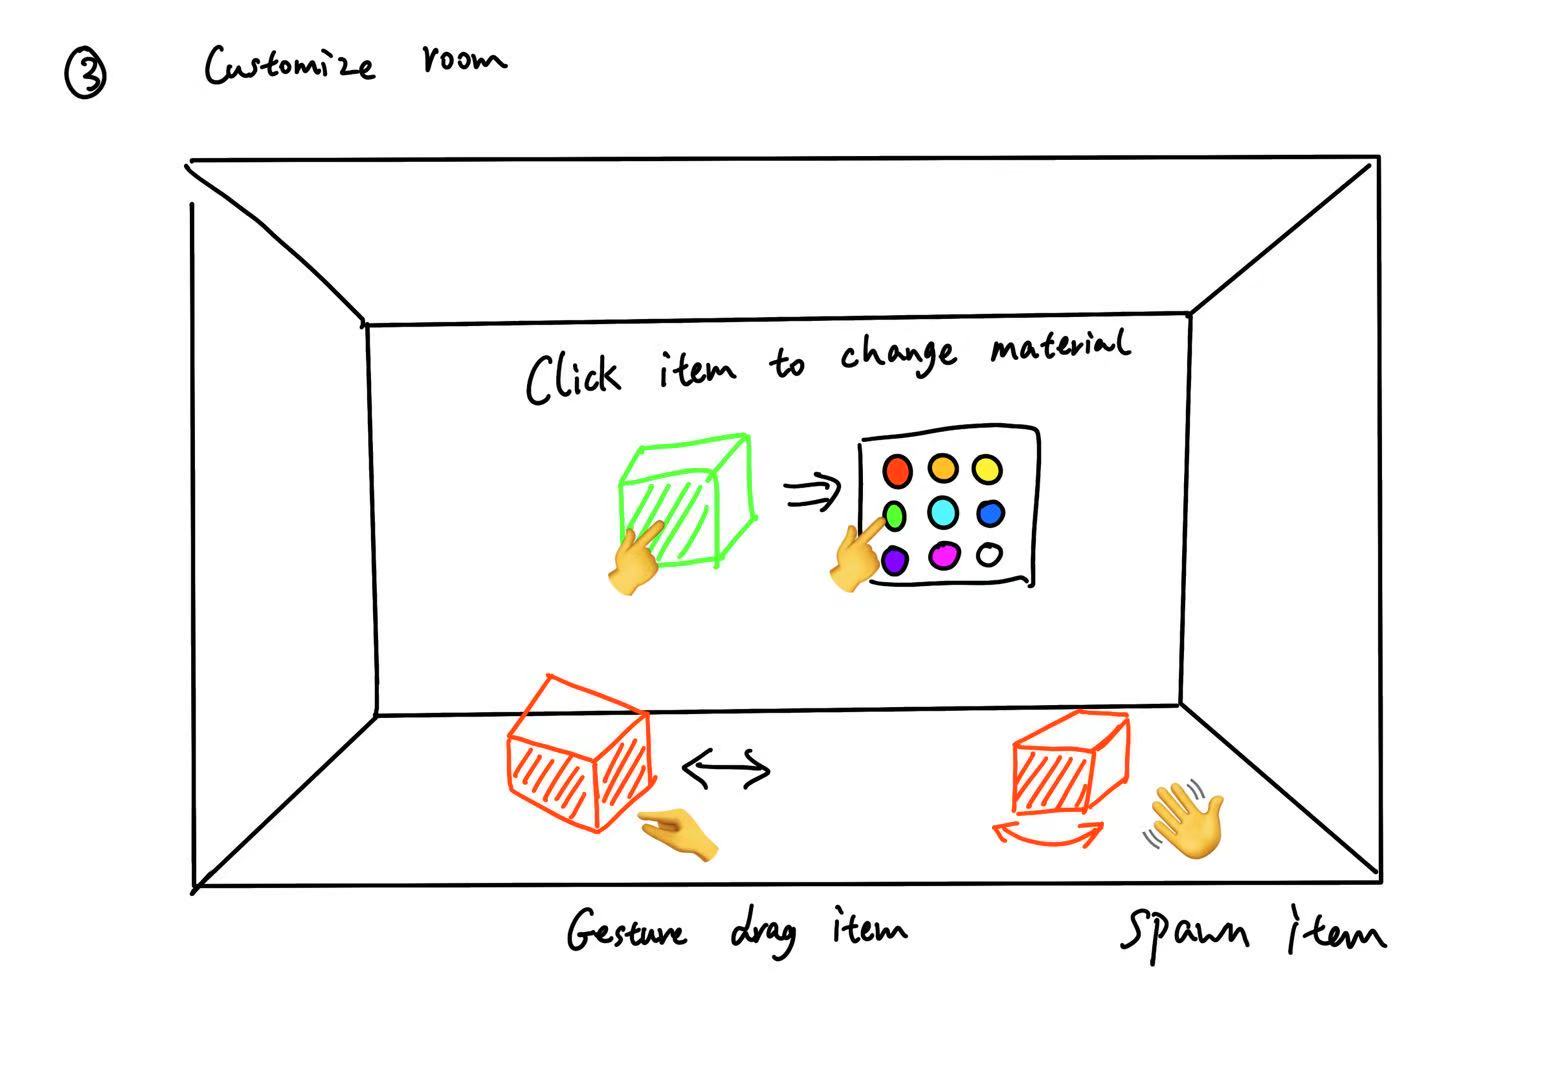 ③ Customize room
Click item to change material
Gesture drag item
Spawn item